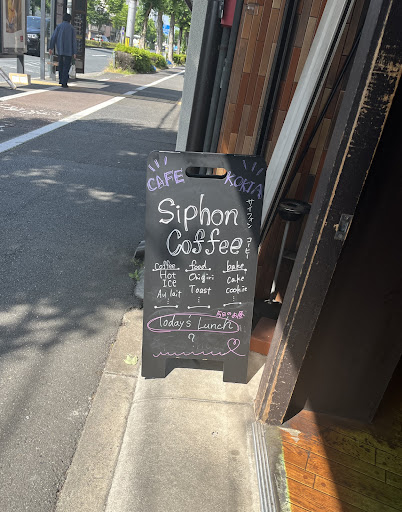 CAFE KOKIA
Siphon
Coffee
サイフォン コーヒー
Coffee food bake
Hot Onigiri cake
ICE Toast cookie
Au lait
Today's Lunch
?